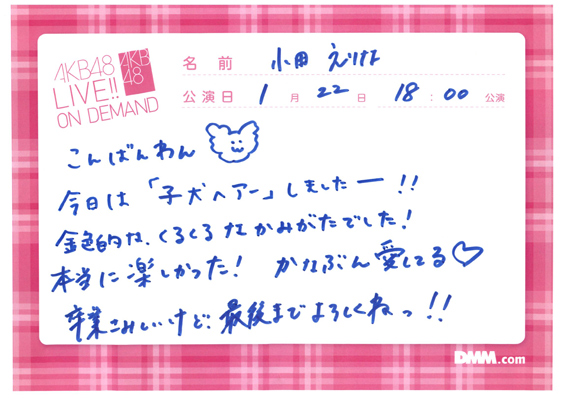 AKB48
LIVE!!
ON DEMAND
AKB
48
名 前 小田 えりな
公演日 1 月 22 日 18 : 00 公演
こんばんわん
今日は「子犬ヘアー」しましたー!!
金色的な、くるくるなかみがたでした!
本当に楽しかった! かなぶん愛してる♡
卒業さみしいけど、最後までよろしくねっ!!
DMM.com